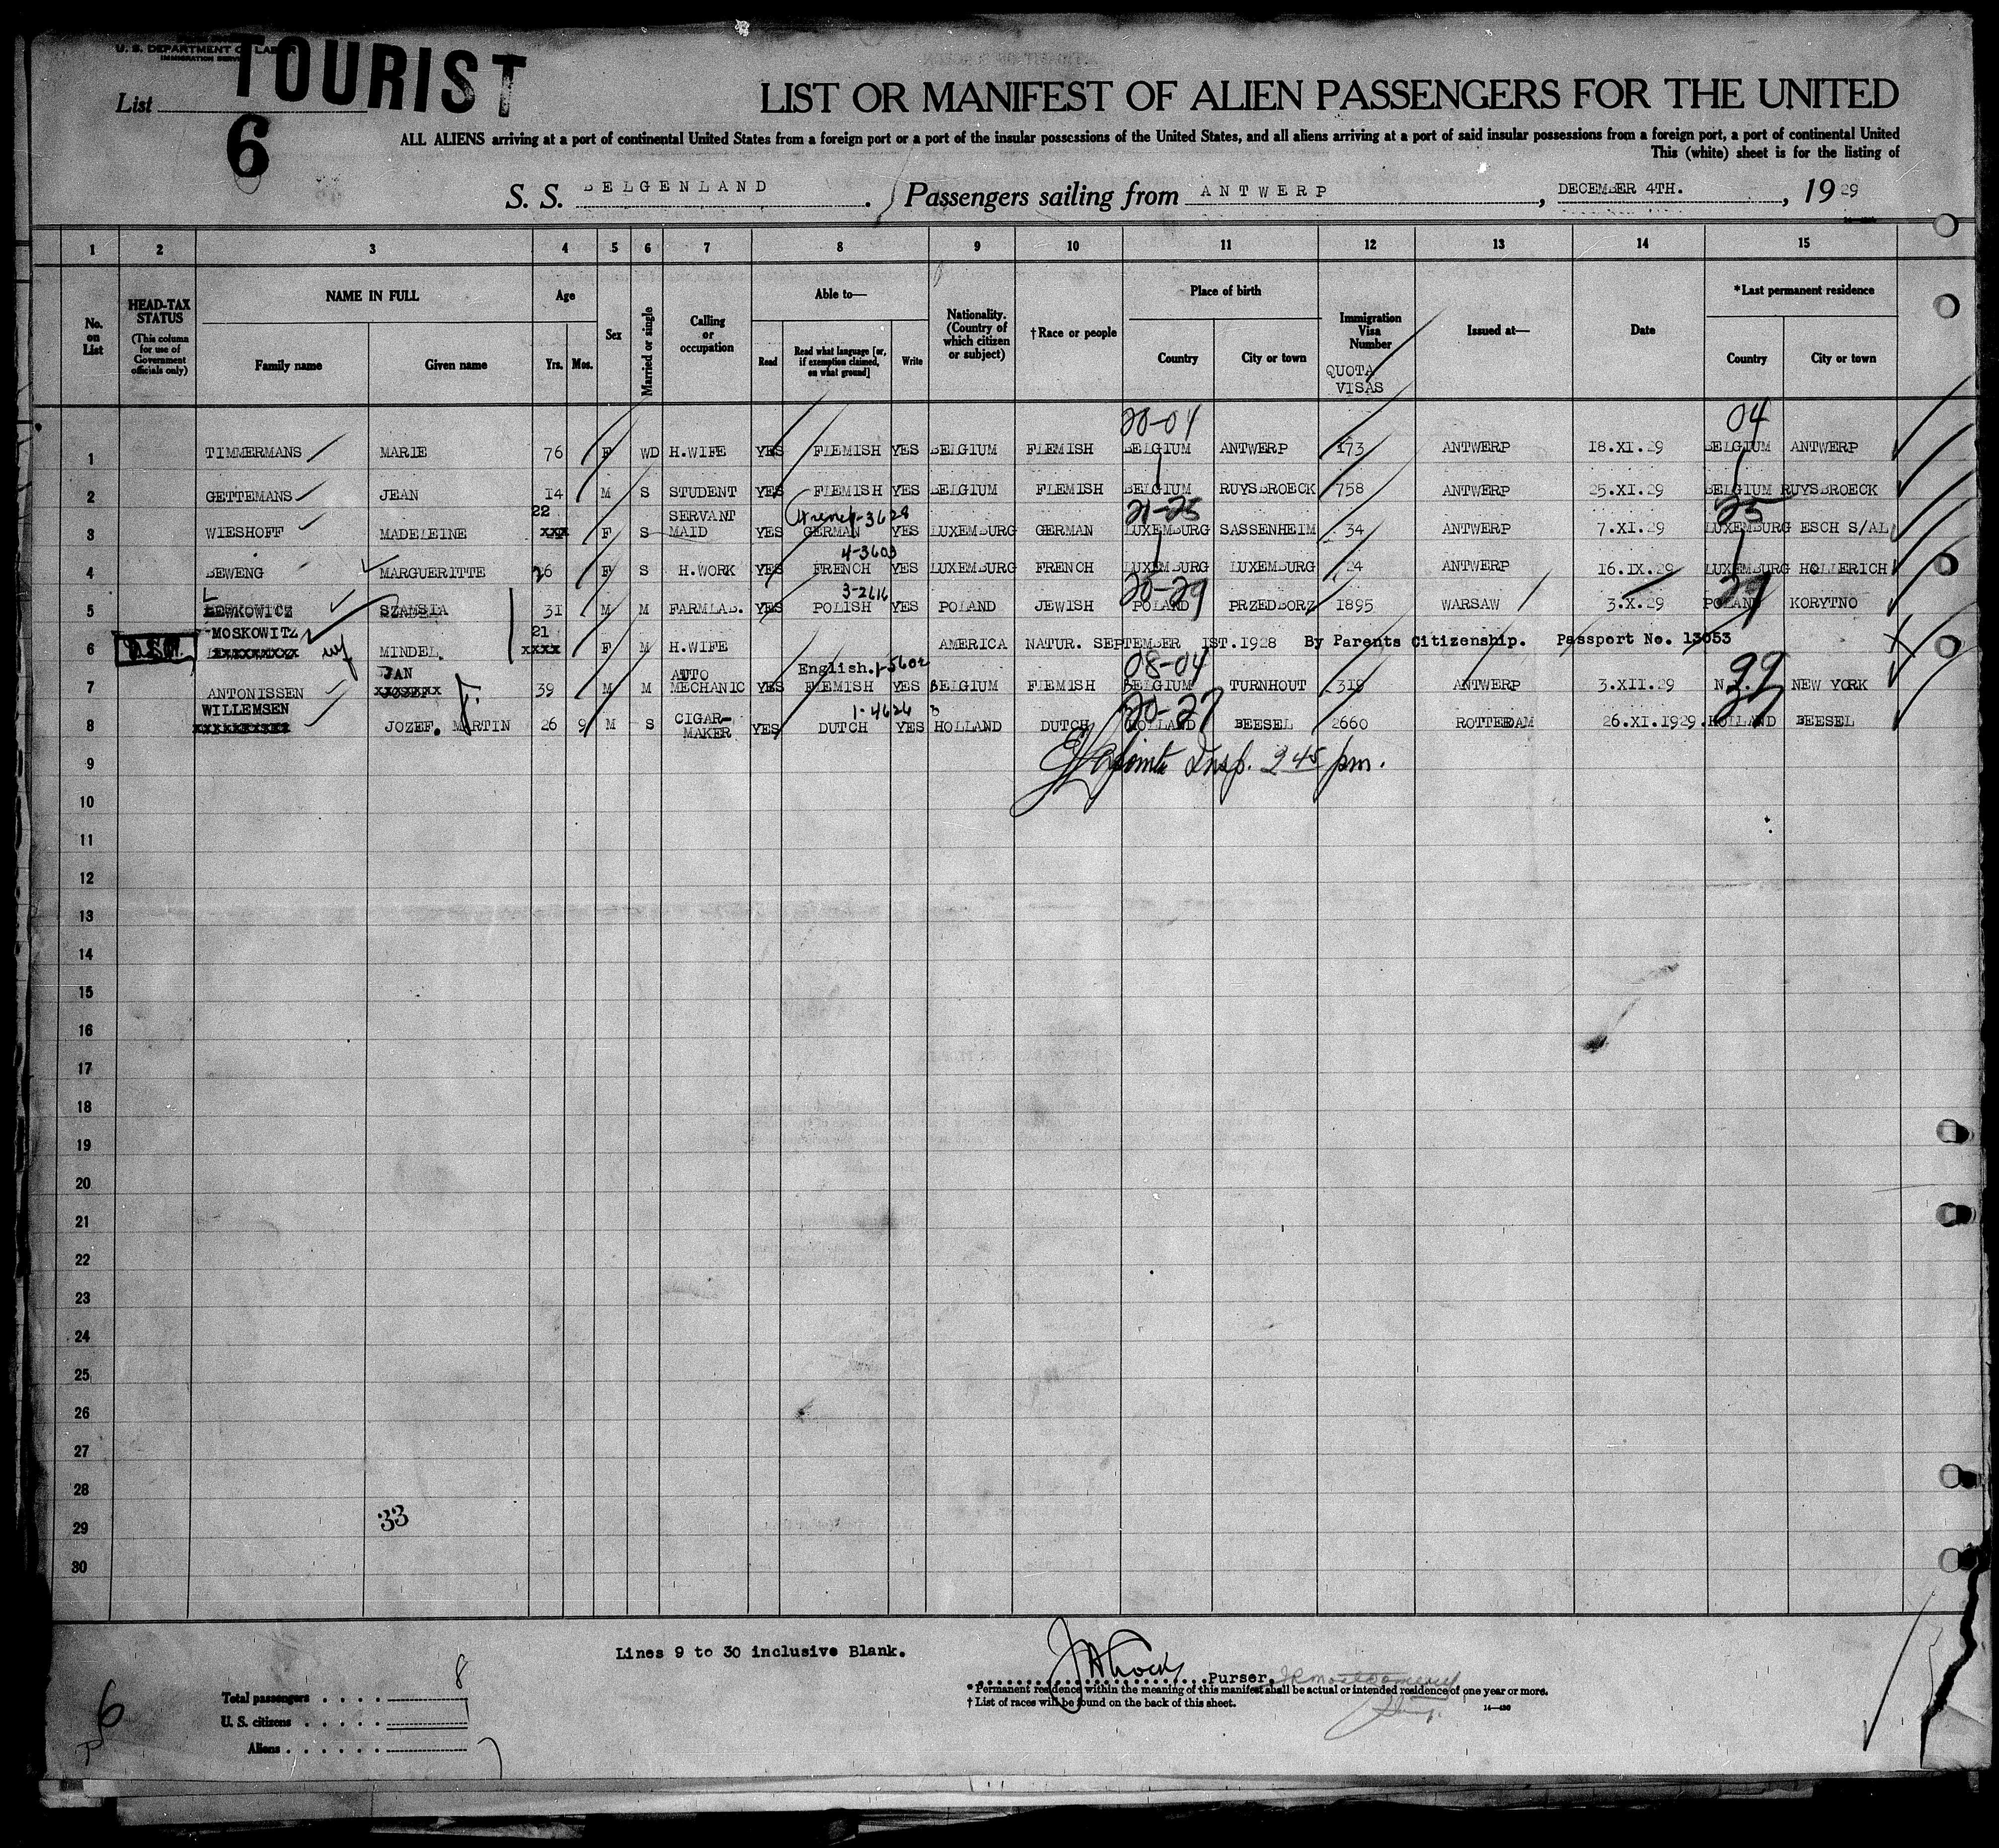 U. S. DEPARTMENT OF LABOR
IMMIGRATION SERVICE
TOURIST
List
6
LIST OR MANIFEST OF ALIEN PASSENGERS FOR THE UNITED
ALL ALIENS arriving at a port of continental United States from a foreign port or a port of the insular possessions of the United States, and all aliens arriving at a port of said insular possessions from a foreign port, a port of continental United
This (white) sheet is for the listing of
S. S. BELGENLAND. Passengers sailing from ANTWERP, DECEMBER 4TH., 1929
1 2 3 4 5 6 7 8 9 10 11 12 13 14 15
No. on List
HEAD-TAX STATUS (This column for use of Government officials only)
NAME IN FULL
Family name Given name
Age
Yrs. Mos.
Sex
Married or single
Calling or occupation
Able to—
Read Read what language [or, if exemption claimed, on what ground] Write
Nationality. (Country of which citizen or subject)
†Race or people
Place of birth
Country City or town
Immigration Visa Number
QUOTA VISAS
Issued at—
Date
*Last permanent residence
Country City or town
20-04 04
1 TIMMERMANS MARIE 76 F WD H.WIFE YES FLEMISH YES BELGIUM FLEMISH BELGIUM ANTWERP 173 ANTWERP 18.XI.29 BELGIUM ANTWERP
2 GETTEMANS JEAN 14 M S STUDENT YES FLEMISH YES BELGIUM FLEMISH BELGIUM RUYSBROECK 758 ANTWERP 25.XI.29 BELGIUM RUYSBROECK
22 SERVANT French-3628 21-25 25
3 WIESHOFF MADELEINE xxx F S MAID YES GERMAN YES LUXEMBURG GERMAN LUXEMBURG SASSENHEIM 34 ANTWERP 7.XI.29 LUXEMBURG ESCH S/AL
4-3603
4 BEWENG MARGUERITTE 26 F S H.WORK YES FRENCH YES LUXEMBURG FRENCH LUXEMBURG LUXEMBURG 24 ANTWERP 16.IX.29 LUXEMBURG HOLLERICH
L 3-2616 20-29 29
5 LEWKOWICZ SZAMSIA 31 M M FARMLAB. YES POLISH YES POLAND JEWISH POLAND PRZEDBORZ 1895 WARSAW 3.X.29 POLAND KORYTNO
MOSKOWITZ 21
6 MINDEL xxxx F M H.WIFE AMERICA NATUR. SEPTEMBER IST.1928 By Parents Citizenship. Passport No. 13053
JAN AUTO English.1-5602 08-04 99
7 ANTONISSEN 39 M M MECHANIC YES FLEMISH YES BELGIUM FLEMISH BELGIUM TURNHOUT 319 ANTWERP 3.XII.29 N.Y. NEW YORK
WILLEMSEN 1-4626 20-27
8 JOZEF. MARTIN 26 9 M S CIGAR-MAKER YES DUTCH YES HOLLAND DUTCH HOLLAND BEESEL 2660 ROTTERDAM 26.XI.1929. HOLLAND BEESEL
9 Insp. 2 45 pm.
10
11
12
13
14
15
16
17
18
19
20
21
22
23
24
25
26
27
28
33
29
30
Lines 9 to 30 inclusive Blank.
Purser.
Total passengers 8
U. S. citizens
Aliens
6
*Permanent residence within the meaning of this manifest shall be actual or intended residence of one year or more.
† List of races will be found on the back of this sheet.
14—430